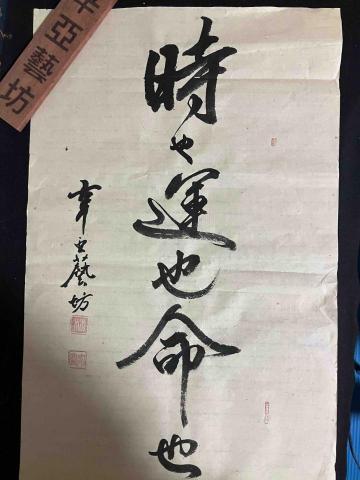 亞藝坊
時也運也命也
亞藝坊